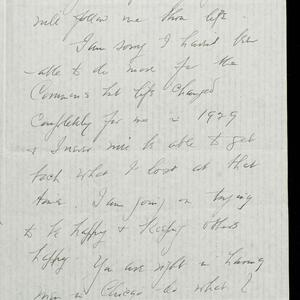 will follow me thru life.
I am sorry I havent been
able to do more for the
Commons but life changed
Completely for me in 1929
& I never will be able to get
back what I lost at that
time. I am going on trying
to be happy & keeping others
happy. You are right in having
men in Chicago do what I